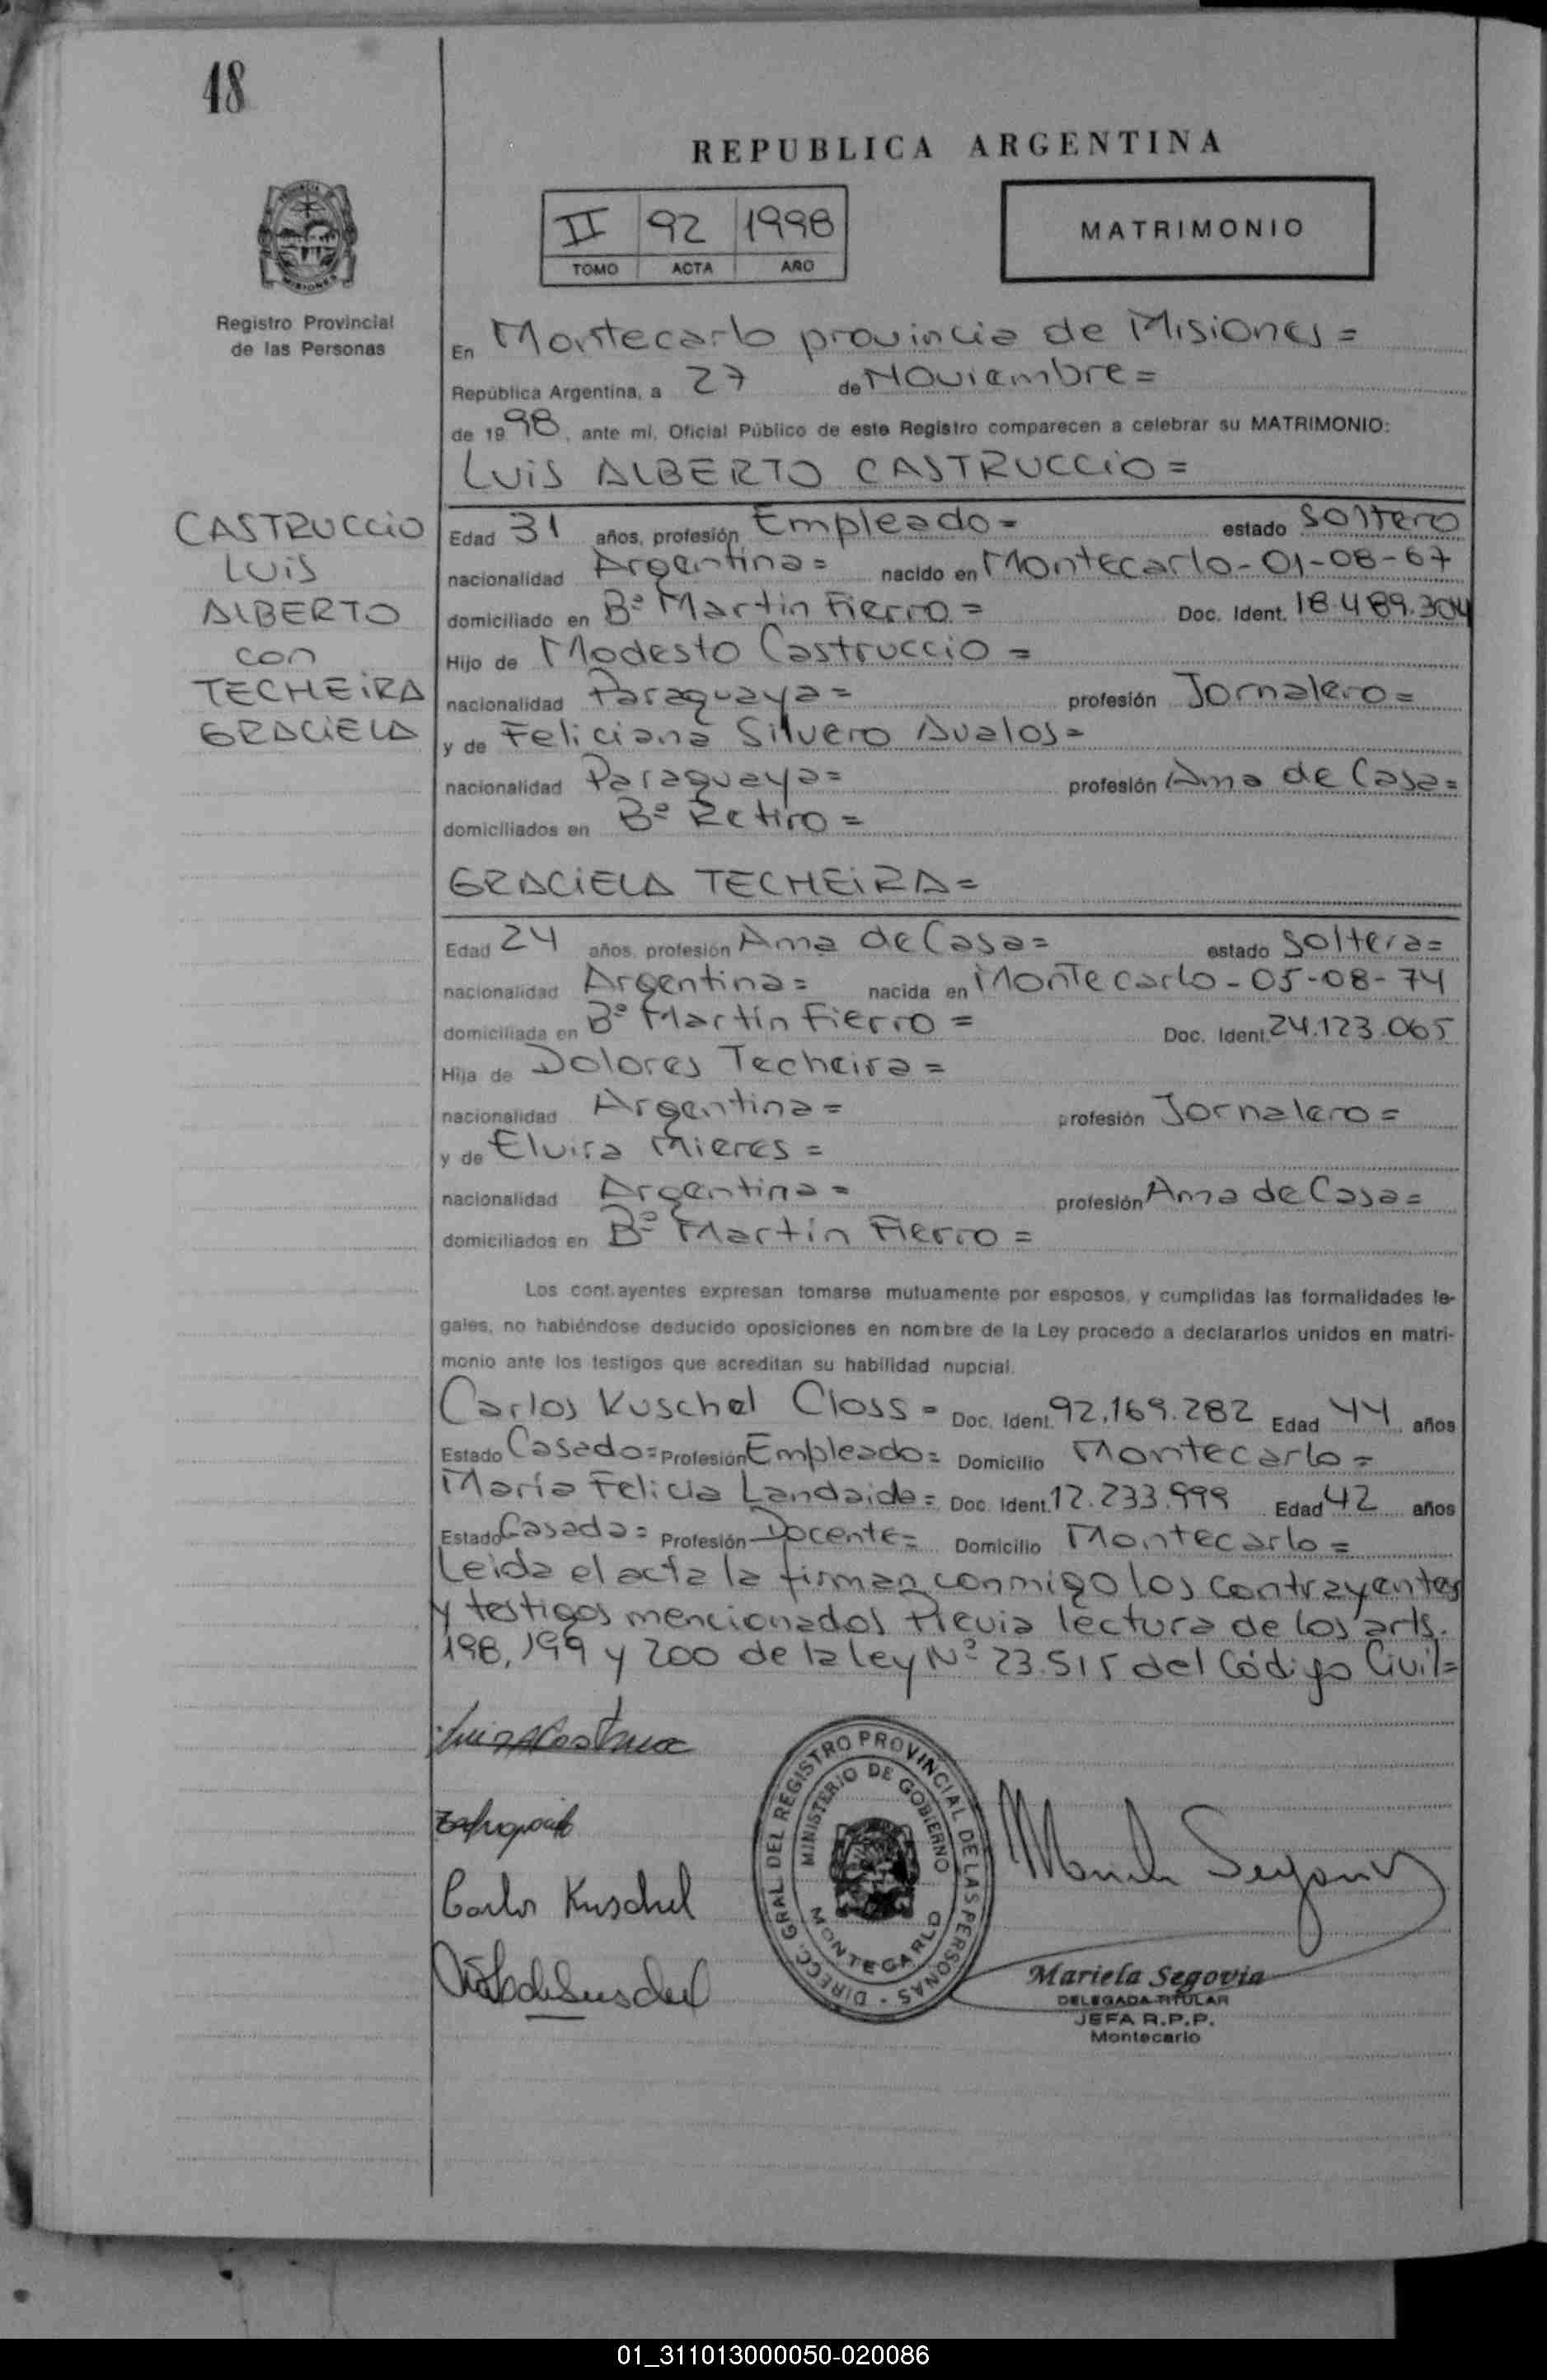 48
REPUBLICA ARGENTINA
II 92 1998
TOMO ACTA AÑO
MATRIMONIO
Registro Provincial
de las Personas
En Montecarlo provincia de Misiones =
República Argentina, a 27 de Noviembre =
de 1998, ante mí, Oficial Público de este Registro comparecen a celebrar su MATRIMONIO:
LUIS ALBERTO CASTRUCCIO =
CASTRUCCIO
LUIS
ALBERTO
con
TECHEIRA
GRACIELA
Edad 31 años, profesión Empleado = estado soltero
nacionalidad Argentina = nacido en Montecarlo - 01-08-67
domiciliado en Bº Martin Fierro = Doc. Ident. 18.489.304
Hijo de Modesto Castruccio =
nacionalidad Paraguaya = profesión Jornalero =
y de Feliciana Silvero Avalos =
nacionalidad Paraguaya = profesión Ama de Casa =
domiciliados en Bº Retiro =
GRACIELA TECHEIRA =
Edad 24 años, profesión Ama de Casa = estado soltera =
nacionalidad Argentina = nacida en Montecarlo - 05-08-74
domiciliada en Bº Martín Fierro = Doc. Ident. 24.123.065
Hija de Dolores Techeira =
nacionalidad Argentina = profesión Jornalero =
y de Elvira Mieres =
nacionalidad Argentina = profesión Ama de Casa =
domiciliados en Bº Martín Fierro =
Los cont.ayentes expresan tomarse mutuamente por esposos, y cumplidas las formalidades le-
gales, no habiéndose deducido oposiciones en nombre de la Ley procedo a declararlos unidos en matri-
monio ante los testigos que acreditan su habilidad nupcial.
Carlos Kuschel Closs = Doc. Ident. 92.169.282 Edad 44 años
Estado Casado = Profesión Empleado = Domicilio Montecarlo =
María Felicia Landaida = Doc. Ident. 12.233.999 Edad 42 años
Estado Casada = Profesión Docente = Domicilio Montecarlo =
Leida el acta la firman conmigo los contrayentes
y testigos mencionados Previa lectura de los arts.
198, 199 y 200 de la ley Nº 23.515 del Código Civil =
Carlos Kuschel
DIRECC. GRAL. DEL REGISTRO PROVINCIAL DE LAS PERSONAS -
MINISTERIO DE GOBIERNO
MONTECARLO
Mariela Segovia
Mariela Segovia
DELEGADA TITULAR
JEFA R.P.P.
Montecarlo
01_311013000050-020086